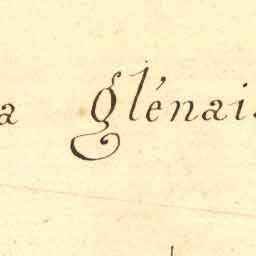 a glénais